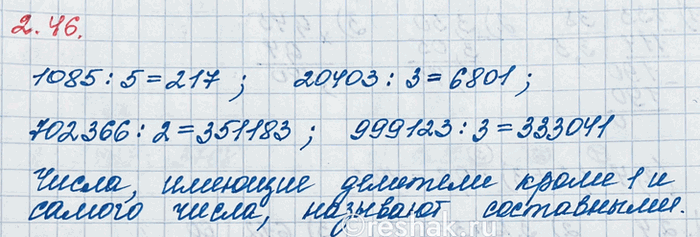 2.46.
1085 : 5 = 217 ; 20403 : 3 = 6801 ;
702366 : 2 = 351183 ; 999123 : 3 = 333041
Числа, имеющие делители кроме 1 и
самого числа, называют составными.
©reshak.ru